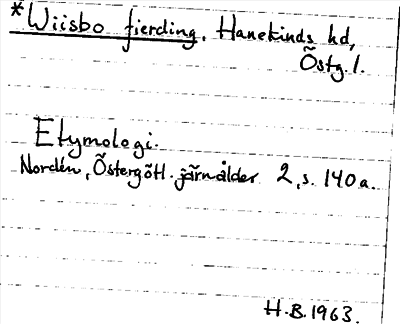 *Wiisbo fierding, Hanekinds hd,
Östg. l.
Etymologi.
Nordén, Östergötl. järnålder 2, s. 140 a.
H.B. 1963.